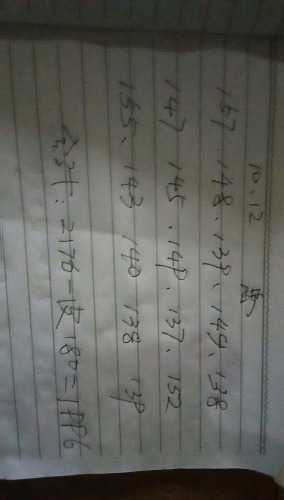 10.12
157. 148. 139. 149. 138
147 145. 149. 137. 132
155. 143 140 138 139
合计: 2176-皮180=1996